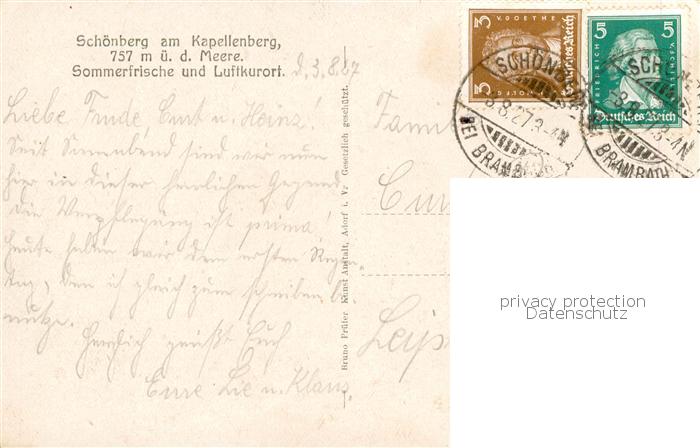 Schönberg am Kapellenberg,
757 m ü. d. Meere.
Sommerfrische und Luftkurort. d. 3.8.27
Liebe Trude, Curt u. Heinz!
Seit Sonnabend sind wir nun
hier in dieser herrlichen Gegend
die Verpflegung ist prima!
heute haben wir den ersten Regen-
tag, den ich gleich zum schreiben be-
nutze. Herzlich grüßt Euch
Eure Lie u. Klaus.
Bruno Prüfer Kunst Anstalt, Adorf i. V. Gesetzlich geschützt.
Familie
Curt
Leipzig
3 3
J. W. V. GOETHE
Deutsches Reich
5 5
FRIEDRICH V. SCHILLER
Deutsches Reich
SCHÖNBERG
8.27.3-4N
BEI BRAMBACH
SCHÖNBERG
8.8.27.3-4N
BRAMBACH
privacy protection
Datenschutz